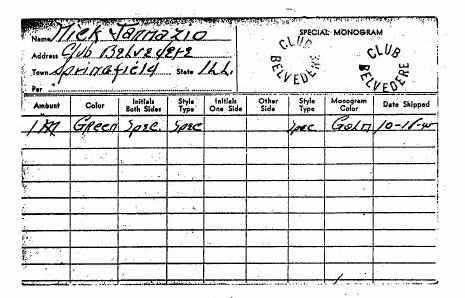 Name Mick Iannazio
SPECIAL MONOGRAM
Address Club Belvedere
CLUB BELVEDERE
CLUB BELVEDERE
Town Springfield State Ill.
Per
Amount Color Initials Both Sides Style Type Initials One Side Other Side Style Type Monogram Color Date Shipped
1 M Green Spec. Spec Spec Gold 10-18-